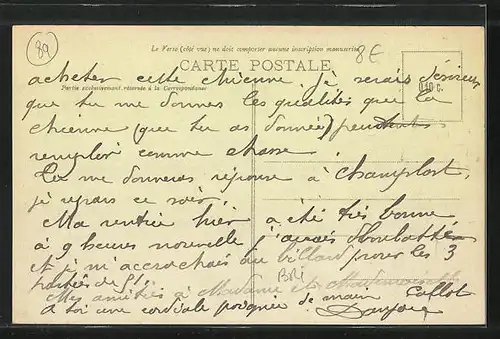 89
8E
Le Verso (côté vue) ne doit comporter aucune inscription manuscrite
CARTE POSTALE
Partie exclusivement réservée à la Correspondance
acheter cette chienne. je serais désireux
que tu me donnes les qualités que la
chienne (que tu as donnée)
remplir comme chasse.
Tu me donneras réponse à Champlost,
je repars ce soir.
Ma rentrée hier a été très bonne
à 9 heures nouvelle j'aurais
et je m'accrochais au billard pour les 3
parties de
Mes amitiés à Madame et à Mademoiselle
à toi une cordiale poignée de main
BRi